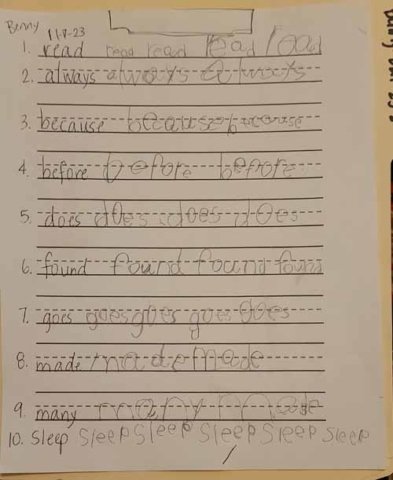 Benny 11-8-23
1. read read read read read
2. always always always
3. because because because
4. before before before
5. does does does does
6. found found found found
7. goes goes goes goes goes
8. made made made
9. many many made
10. Sleep Sleep Sleep Sleep Sleep Sleep